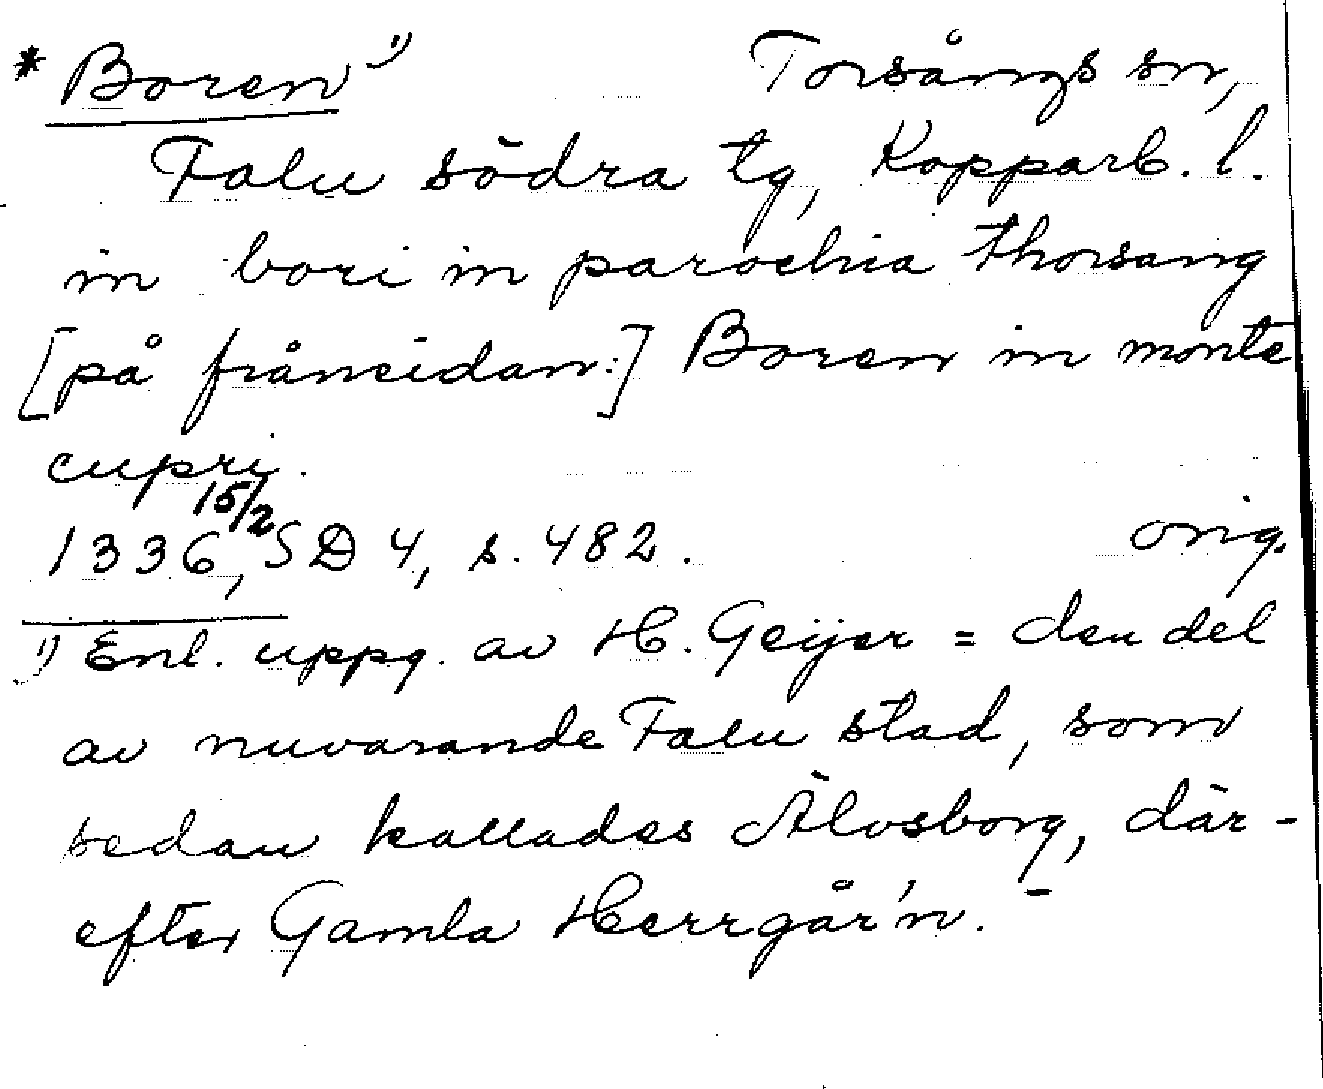 * Boren 1) Torsångs sn,
Falu södra tg, Kopparb. l.
in bori in parochia thorsang
[på frånsidan:] Boren in monte
cupri.
1336 15/2, SD 4, s. 482. orig.
1) Enl. uppg. av H. Geijer = den del
av nuvarande Falu stad, som
sedan kallades Älvsborg, där-
efter Gamla Herrgår'n. -